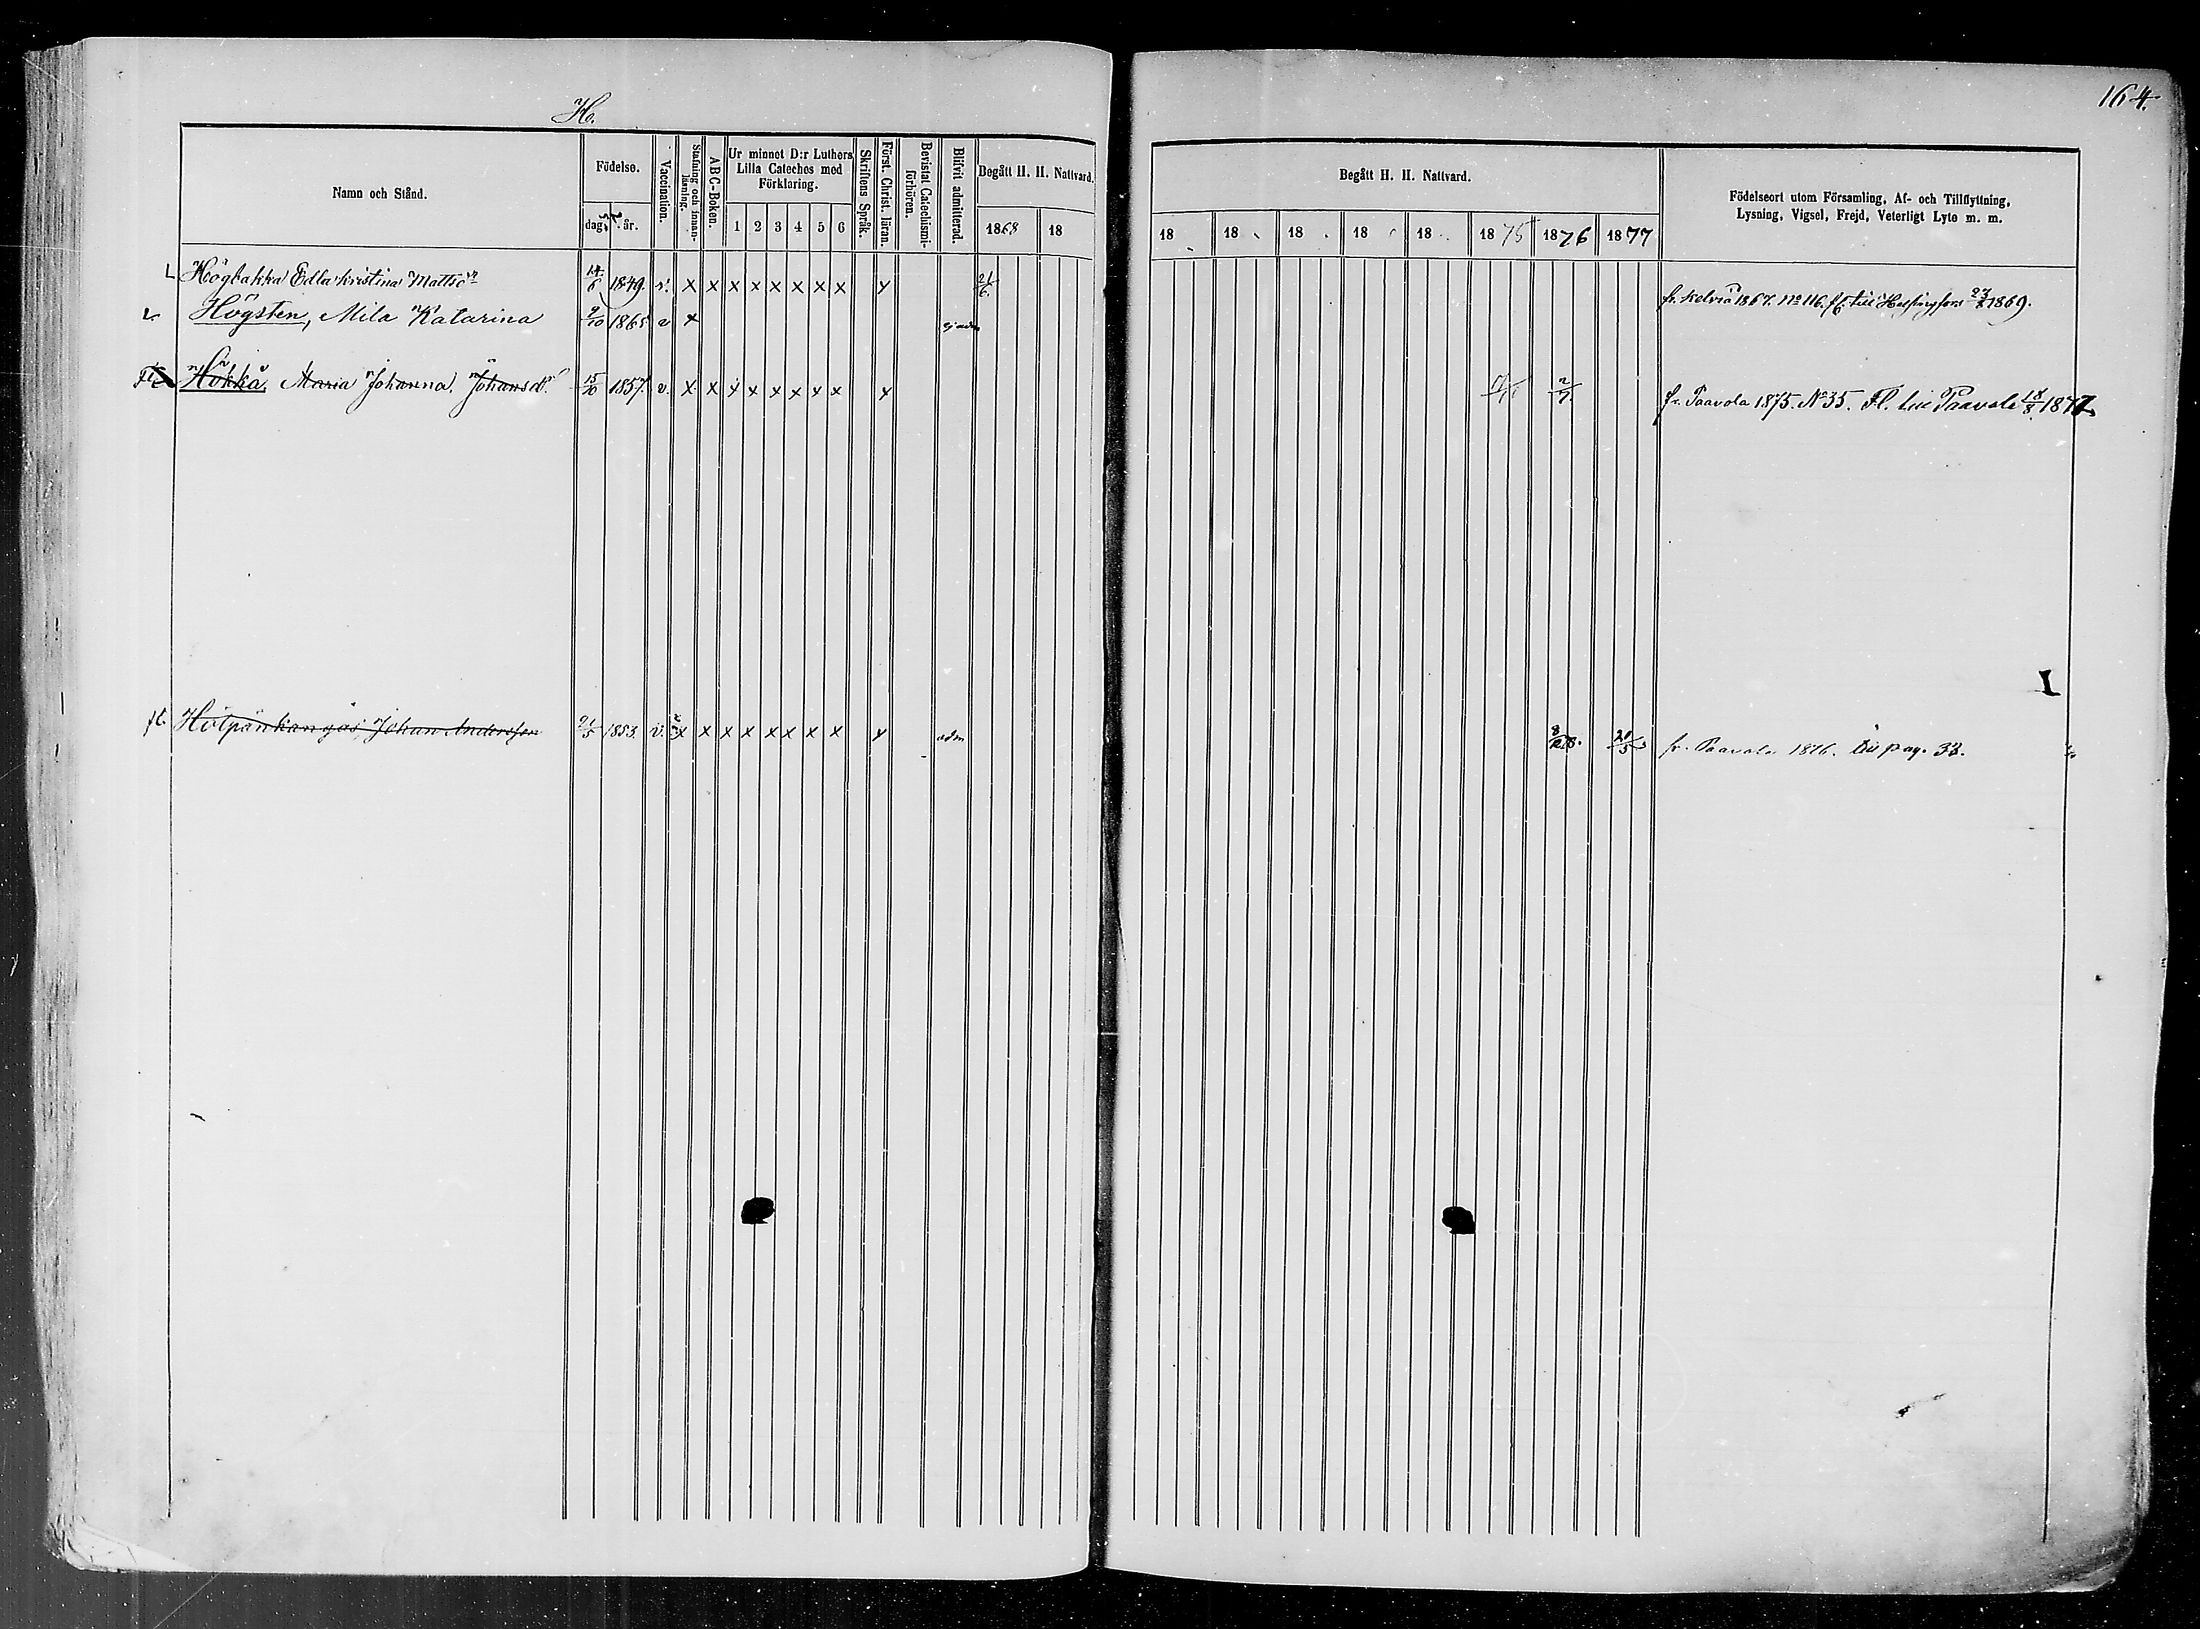 H.
164.
Namn och Stånd.
Födelse.
dag år.
Vaccination.
Stafning och innanläsning.
ABC-Boken.
Ur minnet D:r Luthers Lilla Cateches med Förklaring.
1 2 3 4 5 6
Skriftens Språk.
Först. Christ. läran.
Bevistat Catechismiförhören.
Blifvit admitterad.
Begått H. H. Nattvard.
1868 18
Begått H. H. Nattvard.
18 18 18 18 18 1875 1876 1877
Födelseort utom Församling, Af- och Tillflyttning,
Lysning, Vigsel, Frejd, Veterligt Lyte m. m.
Högbakka Edla Kristina Mattsd:r 14/6 1849. v. x x x x x x x x x 21/6. fr. Kelviå 1867. No 116. fl. till Helsingfors 1869.
Högsten, Mila Katarina 9/10 1865 v x ej adm
Fl. Hökkä, Maria Johanna, Johansd:r 15/10 1857. v. x x x x x x x x x 2/7. fr. Paavola 1875. No 35. Fl. till Paavola 18/8 1877.
I
fl. Johan Andersson 21/5 1853. v. x x x x x x x x x adm 20/5 fr. Paavola 1876. till pag. 32.